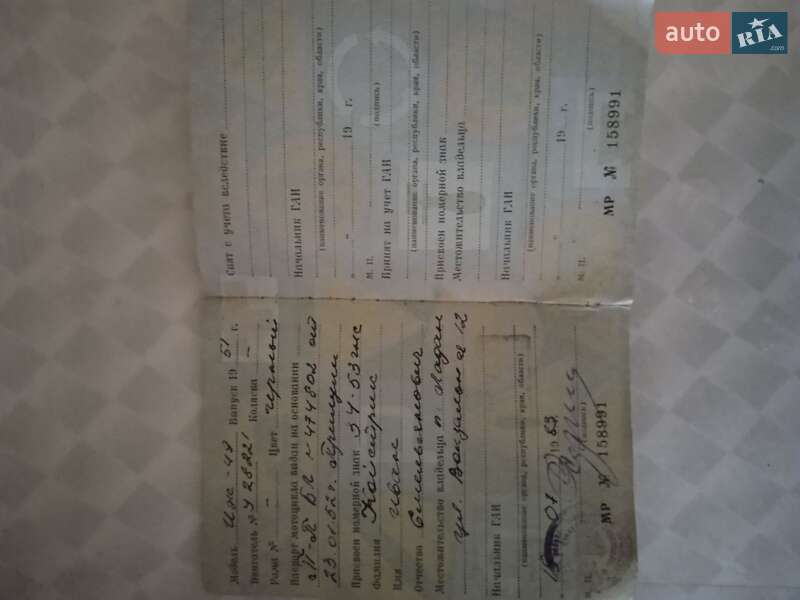 auto RIA .com
Снят с учета вследствие
Начальник ГАИ
(наименование органа, республики, края, области)
" " 19 г.
М. П. (подпись)
Принят на учет ГАИ
(наименование органа, республики, края, области)
Присвоен номерной знак
Местожительство владельца
Начальник ГАИ
(наименование органа, республики, края, области)
" " 19 г.
М. П. (подпись)
МР № 158991
Модель Иж-49 Выпуск 1951 г.
Двигатель № Коляска –
Рама № – Цвет черный
Паспорт мотоцикла выдан на основании
23 01.52г.
Присвоен номерной знак
Фамилия
Имя Иван
Отчество Емельянович
Местожительство владельца
ул. Вокзальная 12
Начальник ГАИ
(наименование органа, республики, края, области)
01 1953
М. П. (подпись)
МР № 158991